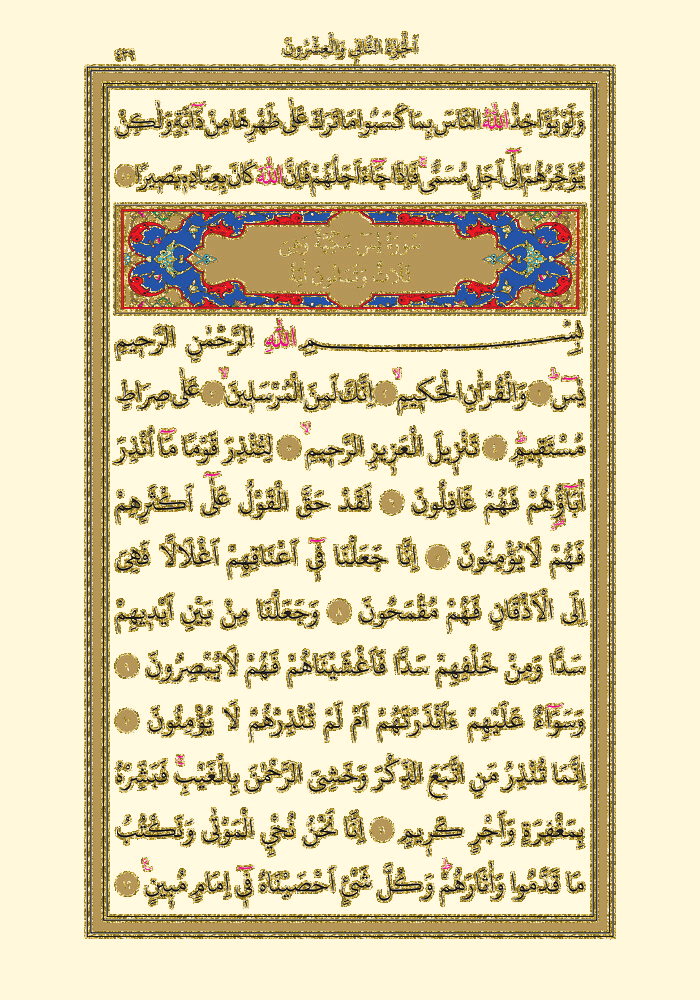 اَلْجُزْءُ الثَّانِي وَالْعِشْرُونَ
وَلَوْ يُؤٰاخِذُ اللّٰهُ النَّاسَ بِمَا كَسَبُوا مَا تَرَكَ عَلٰى ظَهْرِهَا مِنْ دَٓابَّةٍ وَلٰكِنْ
يُؤَخِّرُهُمْ اِلٰٓى اَجَلٍ مُسَمًّىۚ فَاِذَا جَٓاءَ اَجَلُهُمْ فَاِنَّ اللّٰهَ كَانَ بِعِبَادِهٖ بَصٖيرًا
بِسْمِ اللّٰهِ الرَّحْمٰنِ الرَّحٖيمِ
يٰسٓۜ ﴿١﴾ وَالْقُرْاٰنِ الْحَكٖيمِۙ ﴿٢﴾ اِنَّكَ لَمِنَ الْمُرْسَلٖينَۙ ﴿٣﴾ عَلٰى صِرَاطٍ
مُسْتَقٖيمٍۜ ﴿٤﴾ تَنْزٖيلَ الْعَزٖيزِ الرَّحٖيمِۙ ﴿٥﴾ لِتُنْذِرَ قَوْمًا مَٓا اُنْذِرَ
اٰبَٓاؤُ۬هُمْ فَهُمْ غَافِلُونَ ﴿٦﴾ لَقَدْ حَقَّ الْقَوْلُ عَلٰٓى اَكْثَرِهِمْ
فَهُمْ لَا يُؤْمِنُونَ ﴿٧﴾ اِنَّا جَعَلْنَا فٖٓي اَعْنَاقِهِمْ اَغْلَالًا فَهِيَ
اِلَى الْاَذْقَانِ فَهُمْ مُقْمَحُونَ ﴿٨﴾ وَجَعَلْنَا مِنْ بَيْنِ اَيْدٖيهِمْ
سَدًّا وَمِنْ خَلْفِهِمْ سَدًّا فَاَغْشَيْنَاهُمْ فَهُمْ لَا يُبْصِرُونَ ﴿٩﴾
وَسَوَٓاءٌ عَلَيْهِمْ ءَاَنْذَرْتَهُمْ اَمْ لَمْ تُنْذِرْهُمْ لَا يُؤْمِنُونَ ﴿١٠﴾
اِنَّمَا تُنْذِرُ مَنِ اتَّبَعَ الذِّكْرَ وَخَشِيَ الرَّحْمٰنَ بِالْغَيْبِۚ فَبَشِّرْهُ
بِمَغْفِرَةٍ وَاَجْرٍ كَرٖيمٍ ﴿١١﴾ اِنَّا نَحْنُ نُحْيِ الْمَوْتٰى وَنَكْتُبُ
مَا قَدَّمُوا وَاٰثَارَهُمْۜ وَكُلَّ شَيْءٍ اَحْصَيْنَاهُ فٖٓي اِمَامٍ مُبٖينٍ۟ ﴿١٢﴾